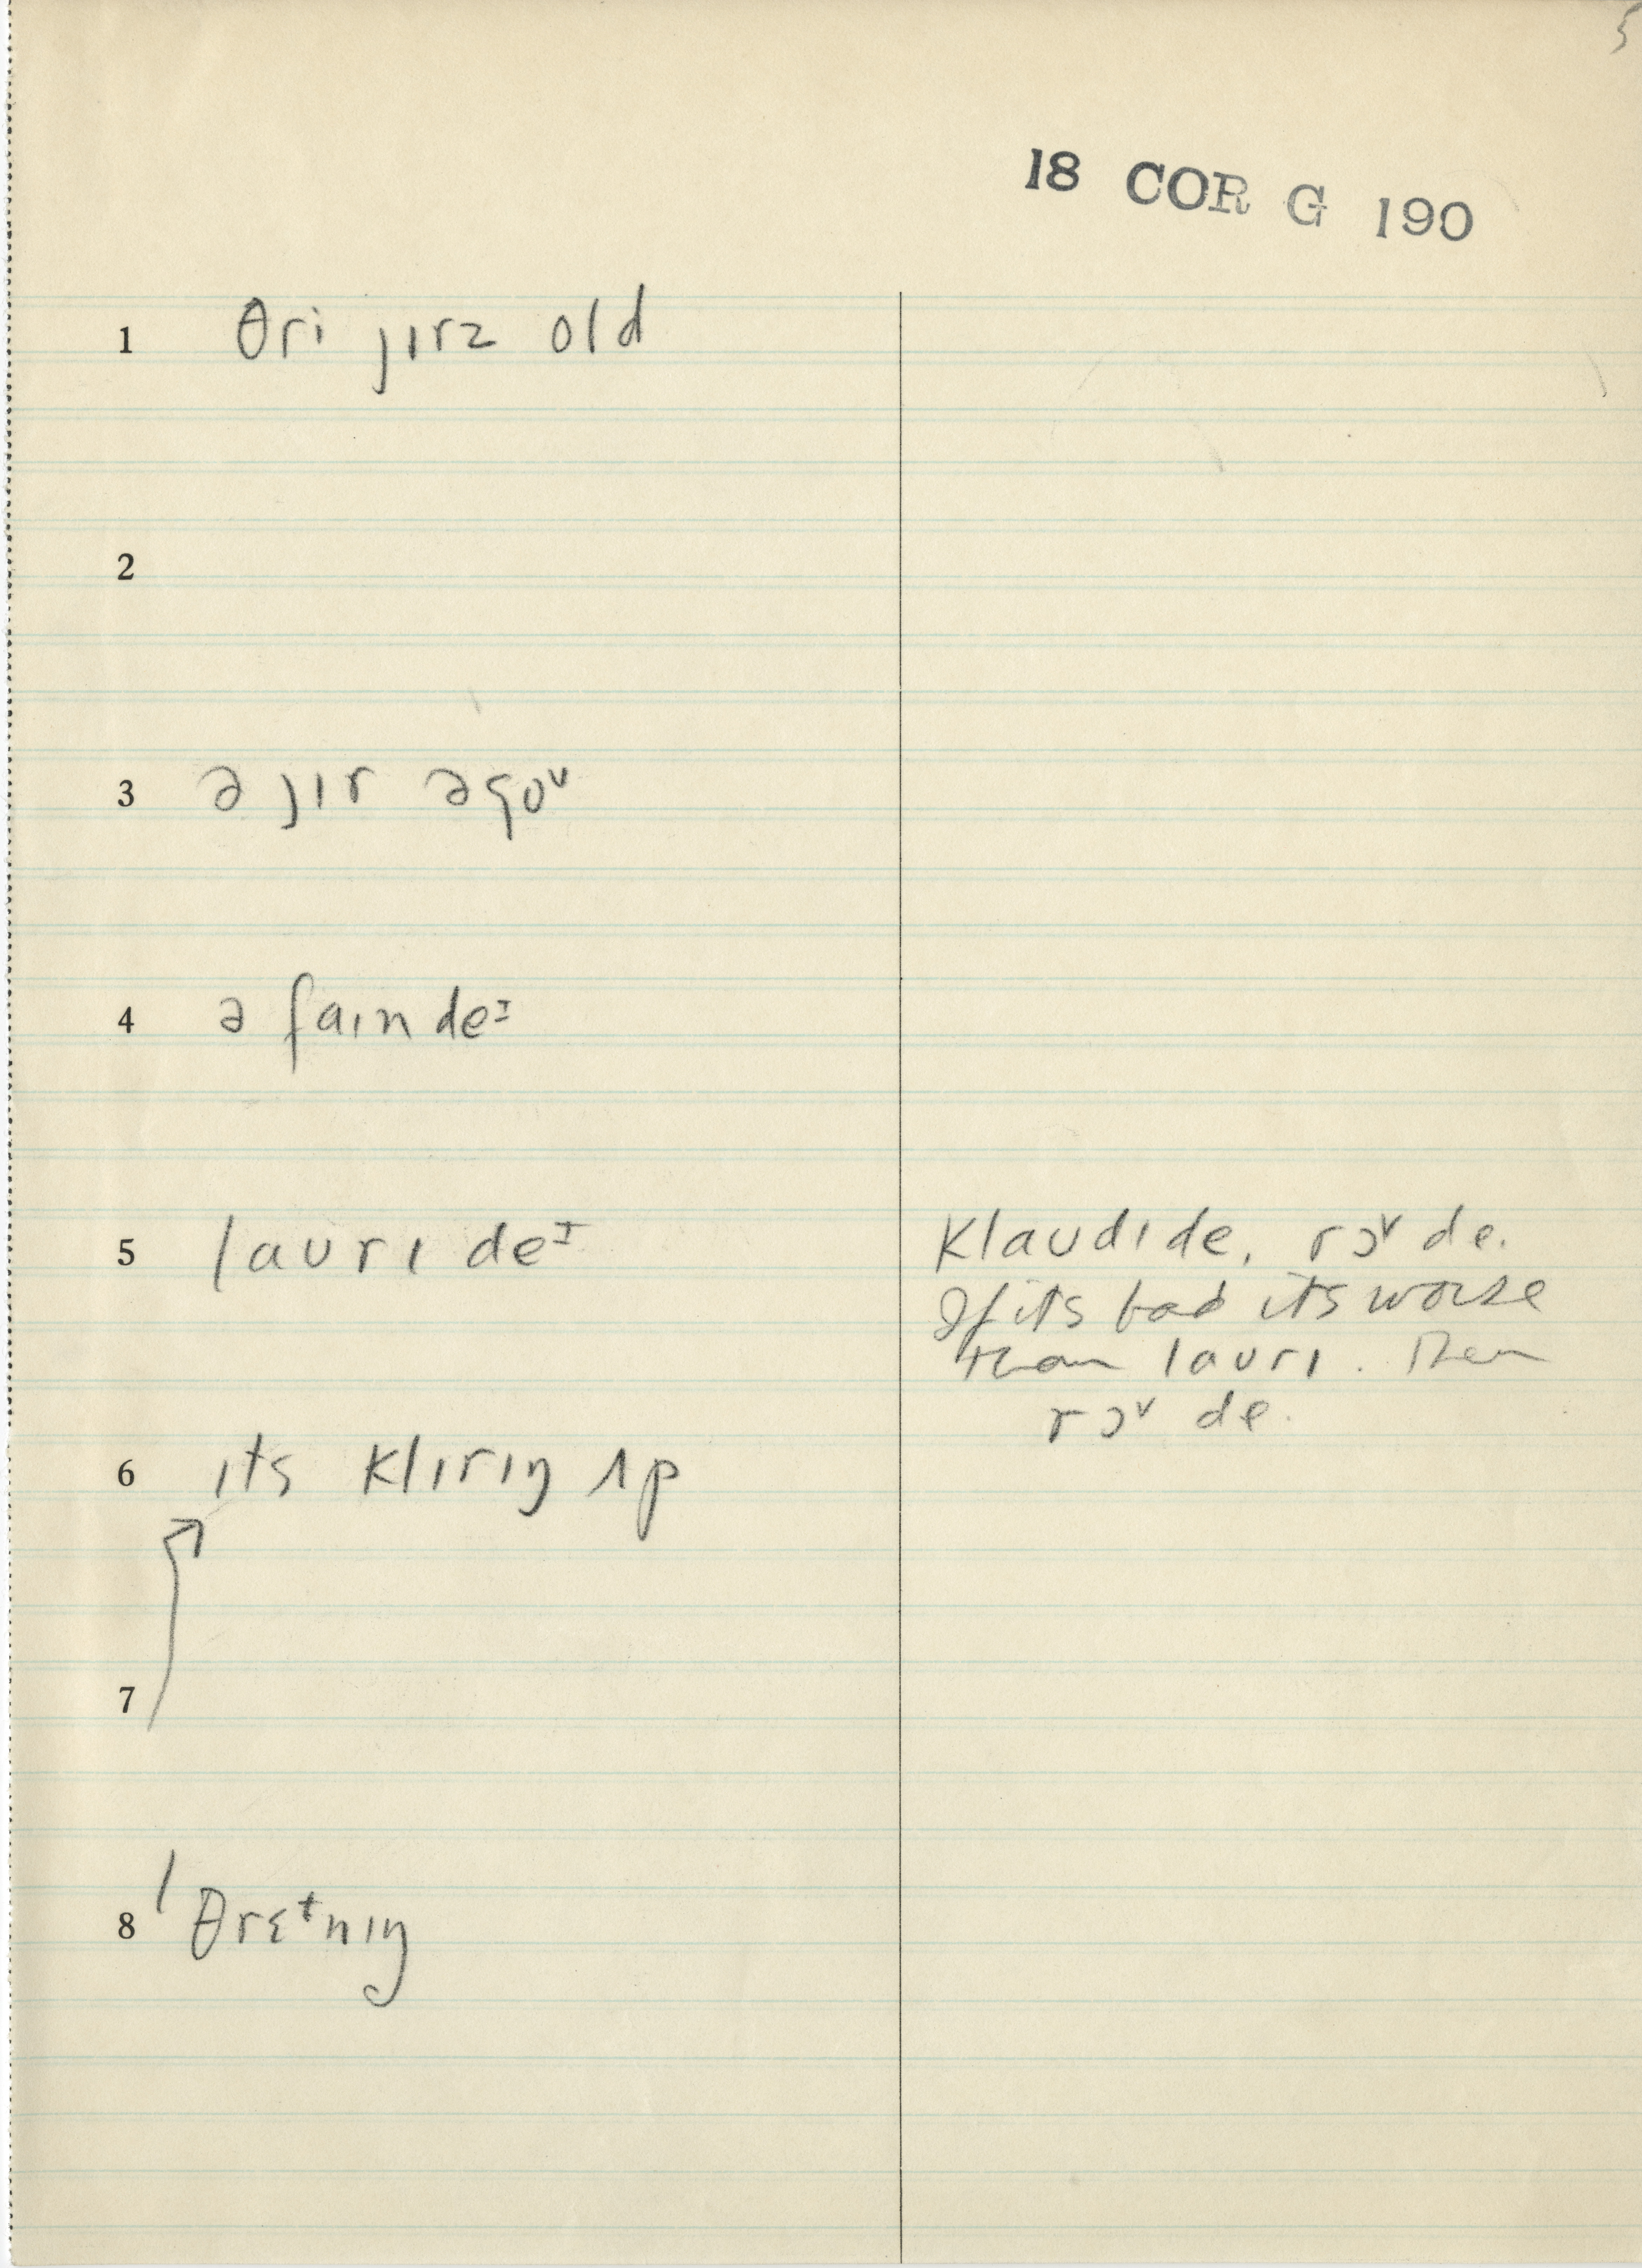 5
18 COR G 190
1 θri jɪrz old
2
3 ə jɪr əgoᴜ
4 ə faɪn deᶦ
5 laᴜrɪ deᶦ
Klaᴜdɪ de, rɔᵛ de.
If its bad its worse
than laᴜrɪ. Then
rɔᵛ de.
6 ɪts klɪrɪŋ ʌp
7
8 ˈθrɛᵗnɪŋ